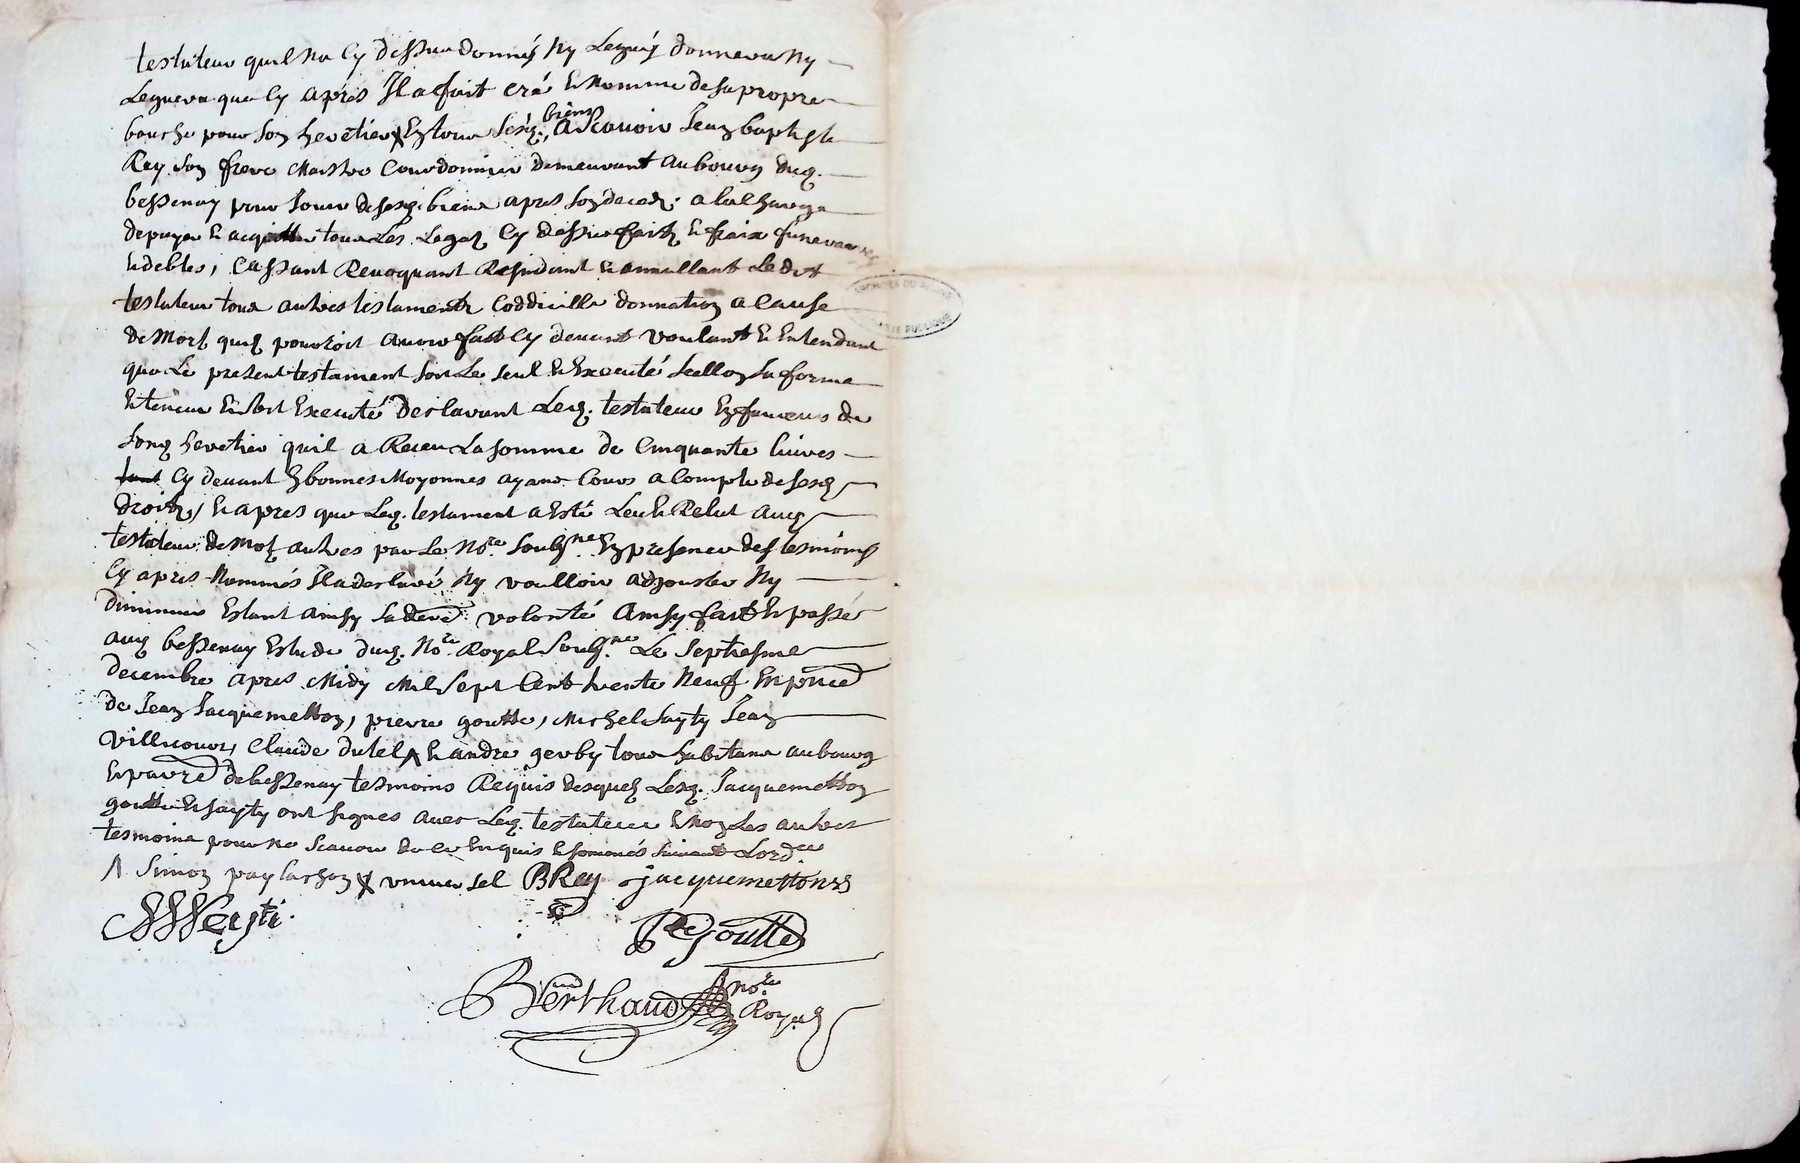 testateur quil na Cy dessus donnés Ny Legués donnera Ny
Leguera que Cy apres Il a fait cré & Nomme de sa propre
bouche pour son heretier X En tous sesd. biens, A Scavoir Jean baptiste
Rey son frere Maistre Courdonnier demeurant au bourg dud.
bessenay pour Jouir de sesd. biens apres son deced. a la Charge
de payer & acquitter tous Les Legat Cy dessus faits & fraix funeraux
& debtes, Cassant Revoquant Resindant & annullant Ledit
testateur tous autres testaments Coddicille donnation a Cause
de Mort quil pourroit avoir fait Cy devant voulant & Entendant
que Le present testament soit Le seul & Executé sellon sa forme
& teneur declarant Led. testateur En faveurs de
sond. heretier quil a Receu La somme de Cinquante livres
Cy devant En bonnes Moyonnes ayant Cours a Compte de sesd.
droits, & apres que Led. testament a Esté Leu & Relut aud.
testateur de Mot autres par Le No.re soubs.né En presence des tesmoins
Cy apres Nommés Il a desclaré Ny voulloir adjouster Ny
diminuer Estant Ainsy sa der.e volonté Ainsy fait & passé
aud. bessenay Estude dud. No.re Royal soubs.né Le septiesme
decembre apres Midy Mil sept Cent trente Neuf En p.nce
de Jean Jacquemetton, pierre goutte, Michel Jean
Claude dutel Λ & andre gerby tous habitans au bourg
& parr.e de bessenay tesmoins Requis desquels Lesd. Jacquemetton
goutte & ont signes avec Led. testateur & Non Les autres
tesmoins pour ne scavoir de ce Enquis & somonés suivant Lord.ce
Λ Simon paylarchon X universel BRey Jacquemetton
Pre Goutte
Berthaud no.re
Royal
ARCHIVES DU RHÔNE
PUBLIQUE